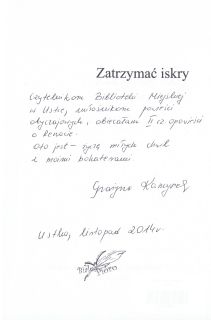 Zatrzymać iskry
Czytelnikom Biblioteki Miejskiej
w Ustce, miłośnikom powieści
obyczajowych, obiecałam II cz. opowieści
o Renacie.
Oto jest – życzę miłych chwil
z moimi bohaterami
Grażyna
Ustka, listopad 2014r.